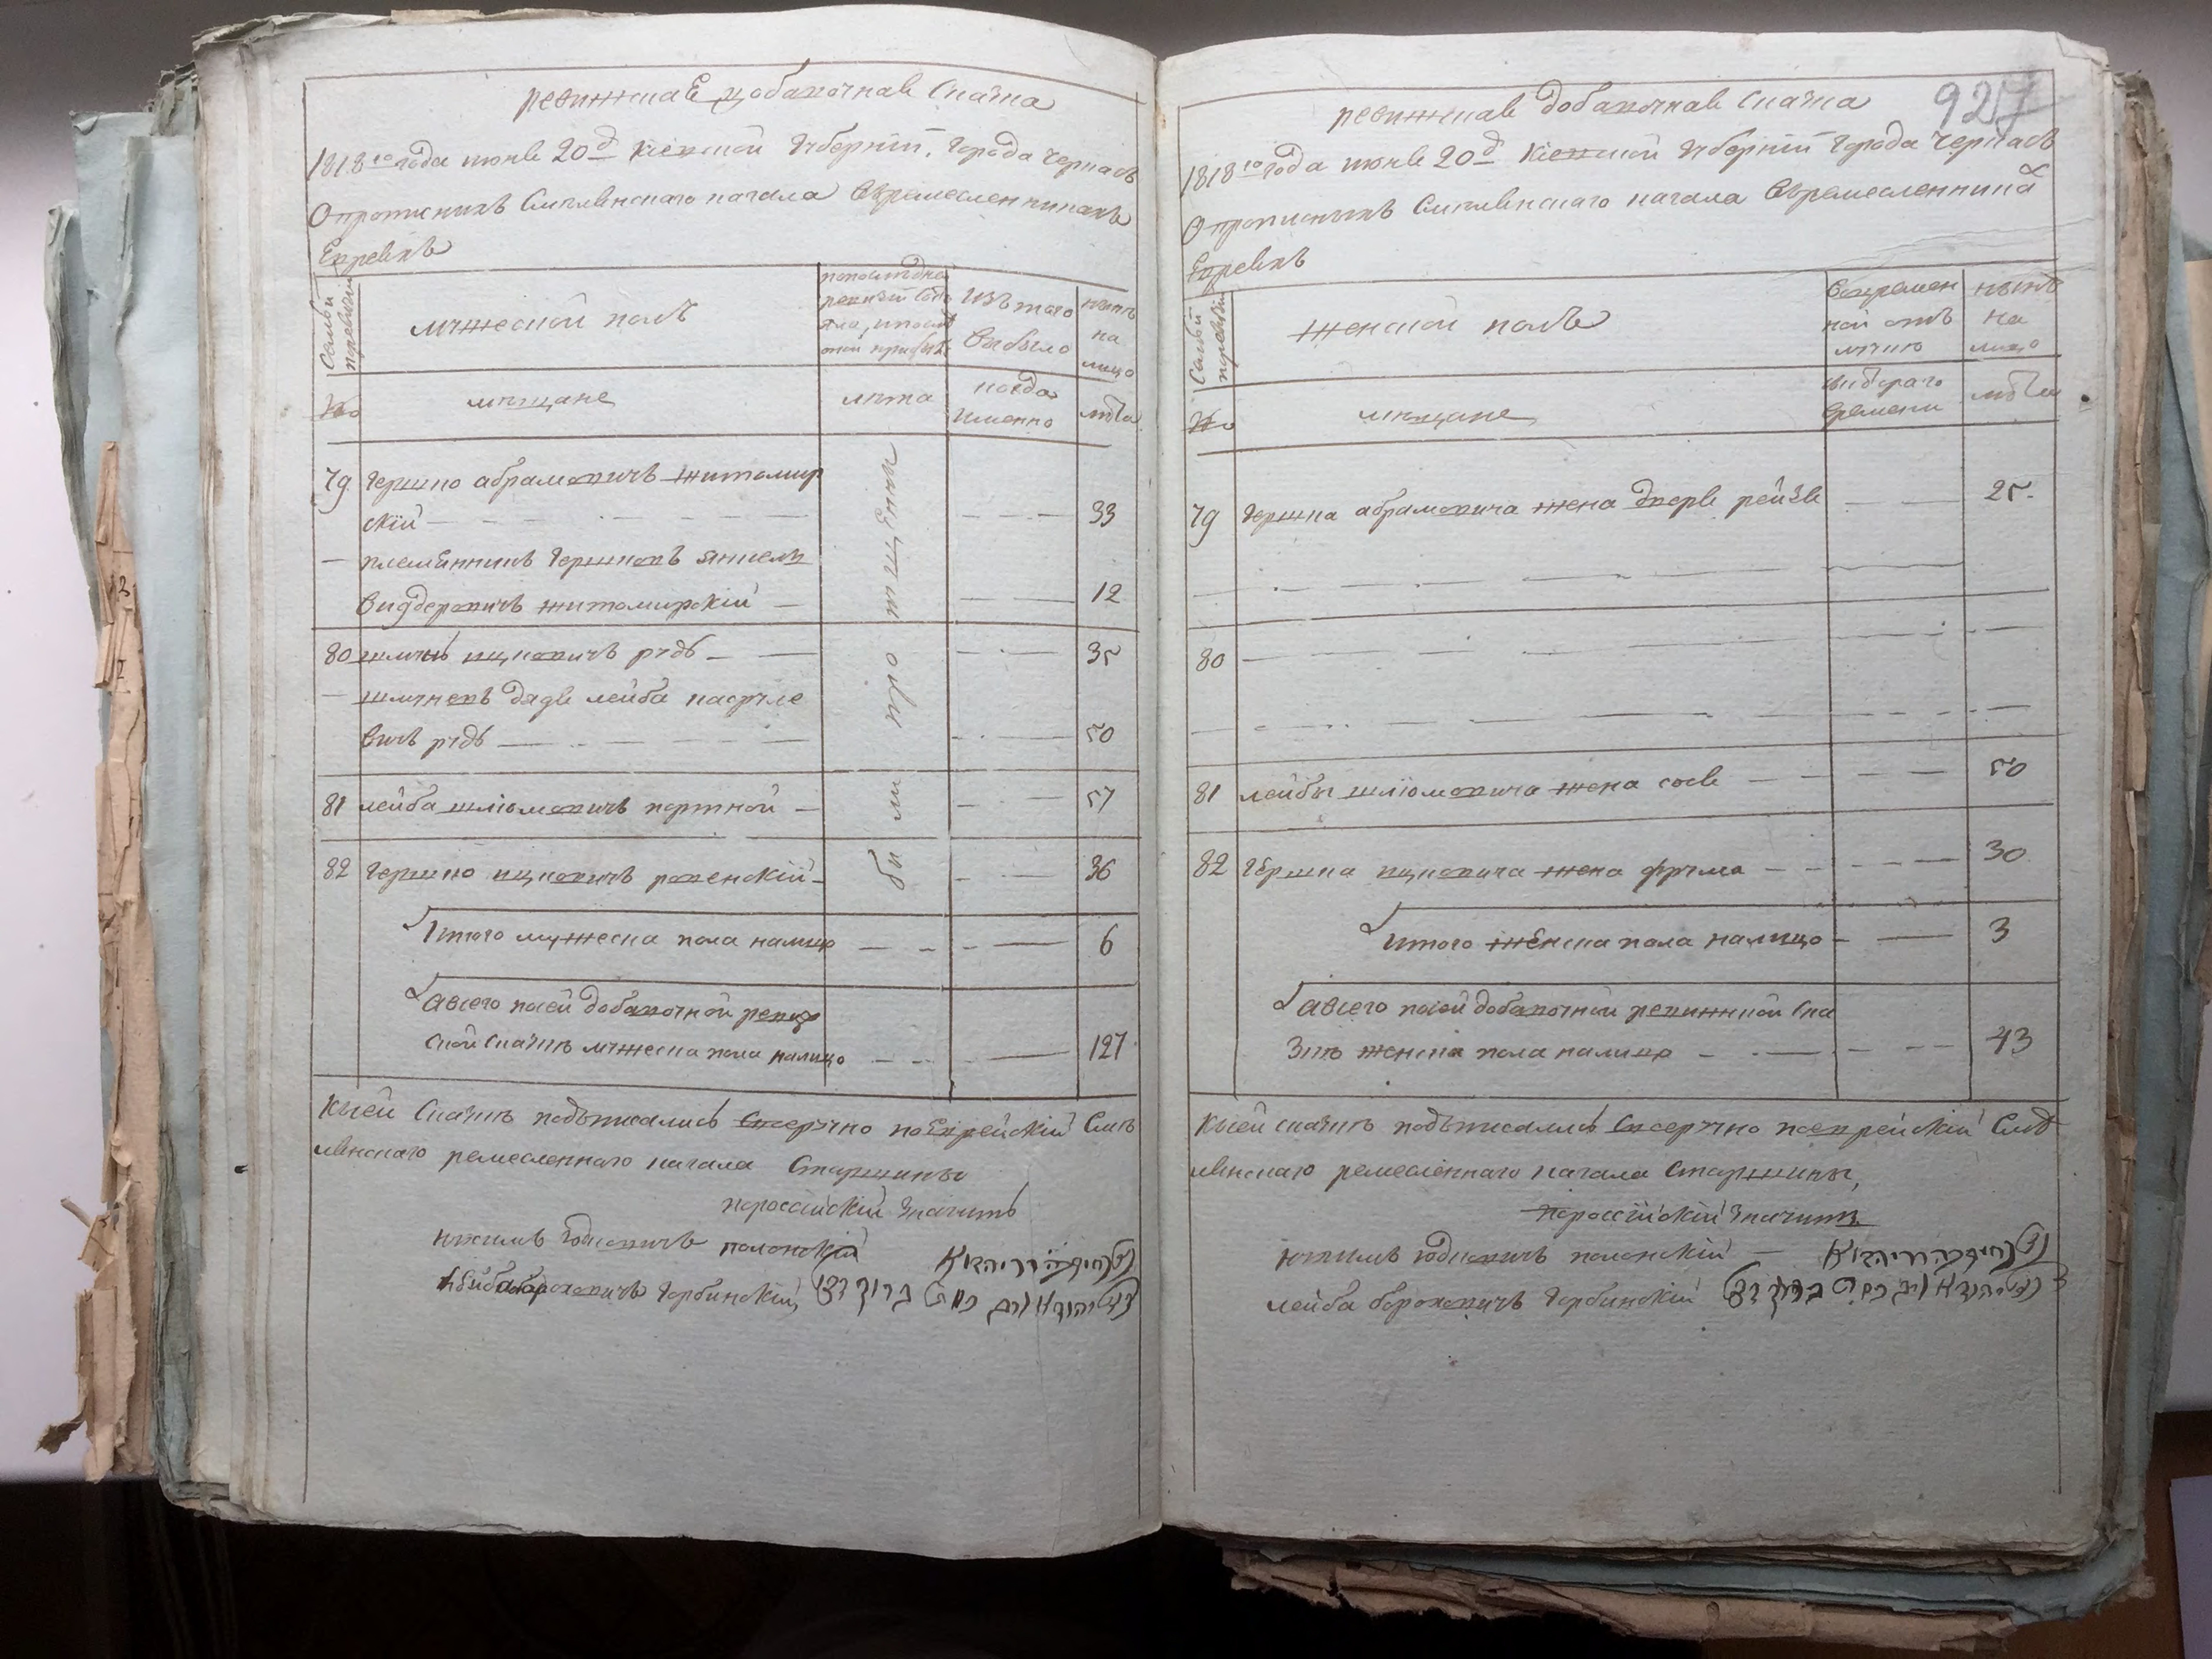 ревижская добавочная сказка
1818го года июня 20д киевской губернии города черкасъ
о прописныхъ смелянскаго кагала в ремесленникахъ
Евреяхъ
семьи
по ревизии
мужеской полъ
по последней
ревизии состо
яло, и после
оной прибыло
изъ того
выбыло
ныне
на
лицо
№
мещане
лета
когда
именно
лета
были пропищены
79 гершко абрамовичъ житомир
скій 33
племенникъ гершковъ янкель
видеровичъ житомирскій 12
80 шмуль ицковичъ рудь 35
шмулевъ дядя лейба насруле
вичъ рудь 50
81 лейба шліомовичъ портной 57
82 гершко ицковичъ ровенскій 36
Итого мужеска пола налицо 6
а всего посей добавочной ревиз
ской сказке мужеска пола налицо 127
к сей сказке подъписались своеручно по Еврейскій сме
лянскаго ремесленнаго кагала старшины
по россійскій значитъ
юкиль іодковичъ полонскій
лейба бороховичъ горбинскій
927
ревижская добавочная сказка
1818го года июня 20д киевской губернии города черкасъ
о прописныхъ смелянскаго кагала в ремесленника
х
Евреяхъ
семьи
по ревизии
женской полъ
во времен
ной отъ
лучке
ныне
на
лицо
№
мещане
с котораго
времени
лета
79 гершка абрамовича жена дворя рейзя 25
80
81 лейбы шліомовича жена сося 50
82 гершка ицковича жена фрума 30
итого женска пола налицо 3
а всего посей добавочной ревижской ска
зке женска пола налицо 43
к сей сказке подъписались своеручно по еврейскій сме
лянскаго ремесленнаго кагала старшины,
по россійскій значитъ
юкиль іодковичъ полонскій
лейба бороховичъ горбинскій